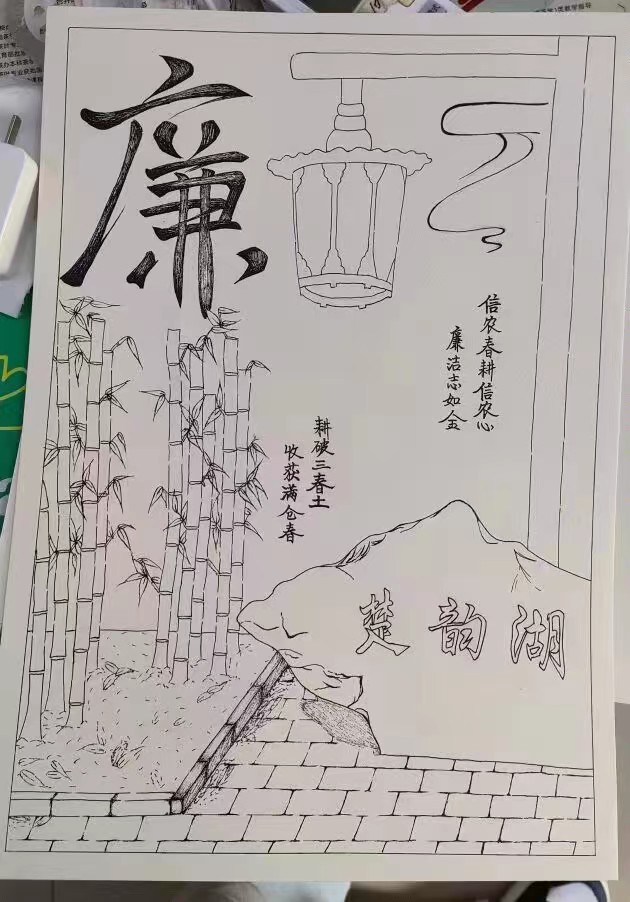 廉
信农春耕信农心
廉洁志如金
耕破三春土
收获满仓春
楚韵湖